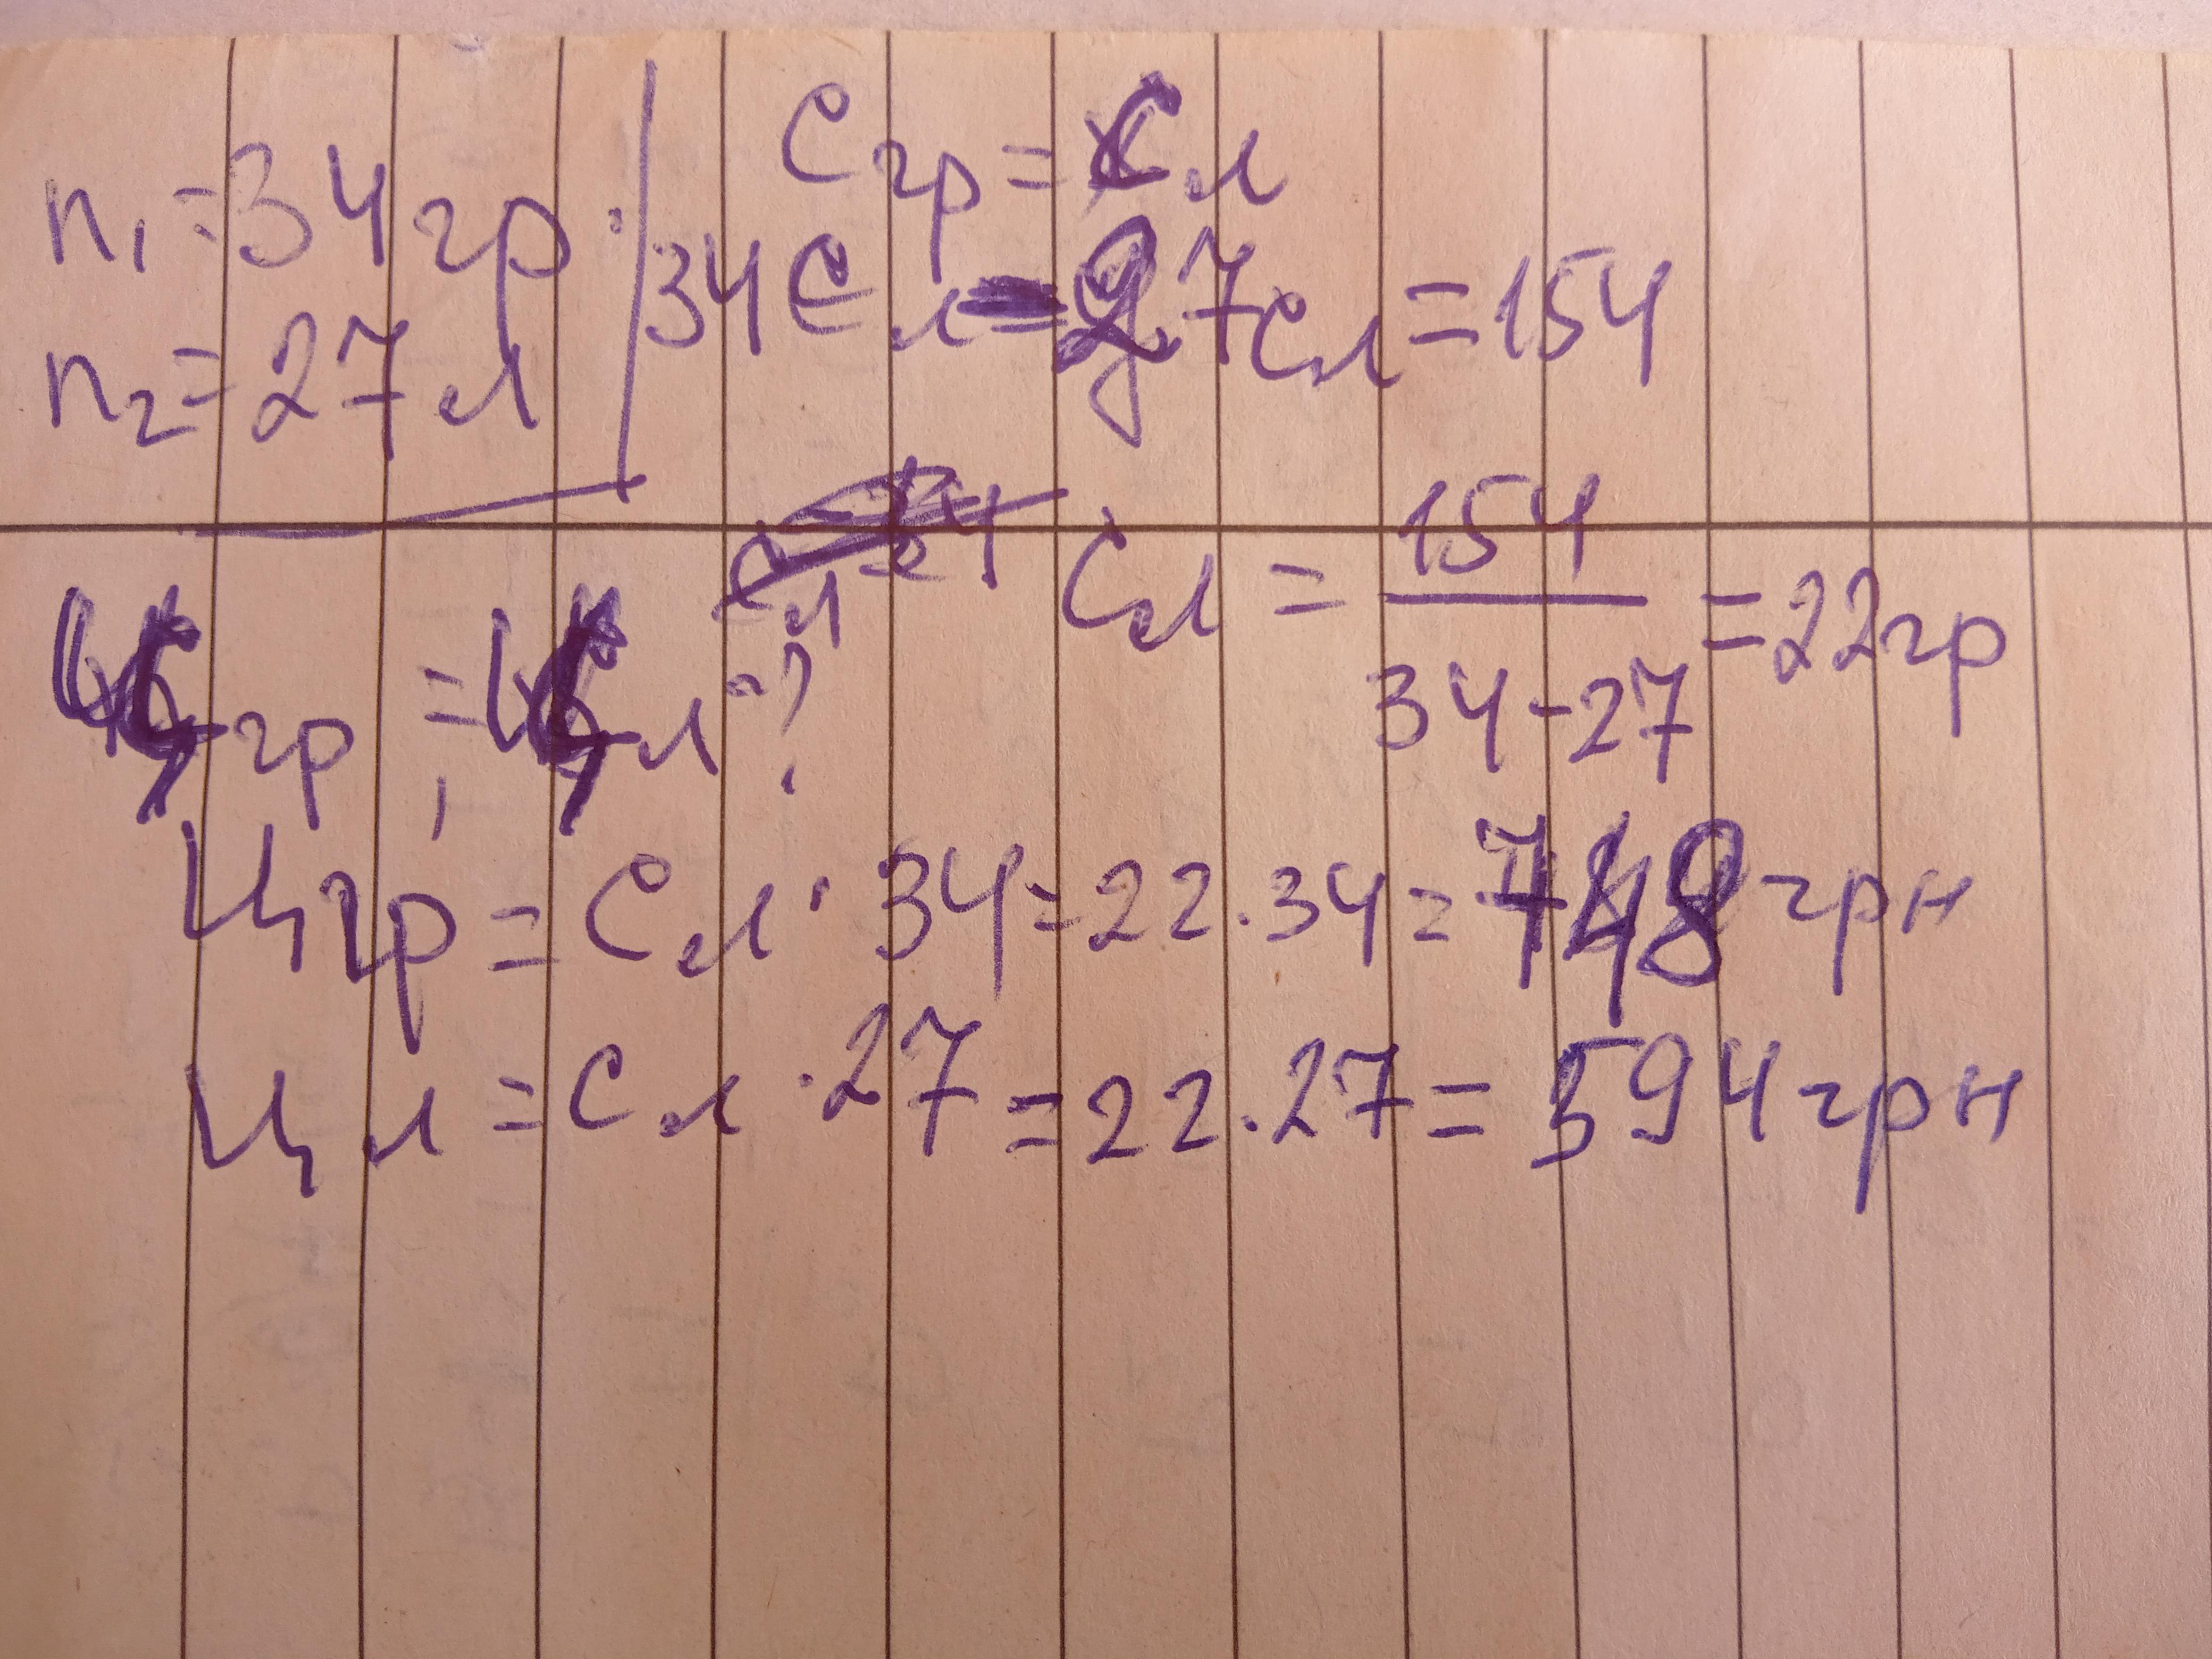 n₁=34гр.
n₂=27л
Cгр=Cл
34Cл-27Cл=154
Cл=154/(34-27)=22гр
Цгр, =Цл-?
Цгр=Cл·34=22·34=748грн
Цл=Cл·27=22·27=594грн